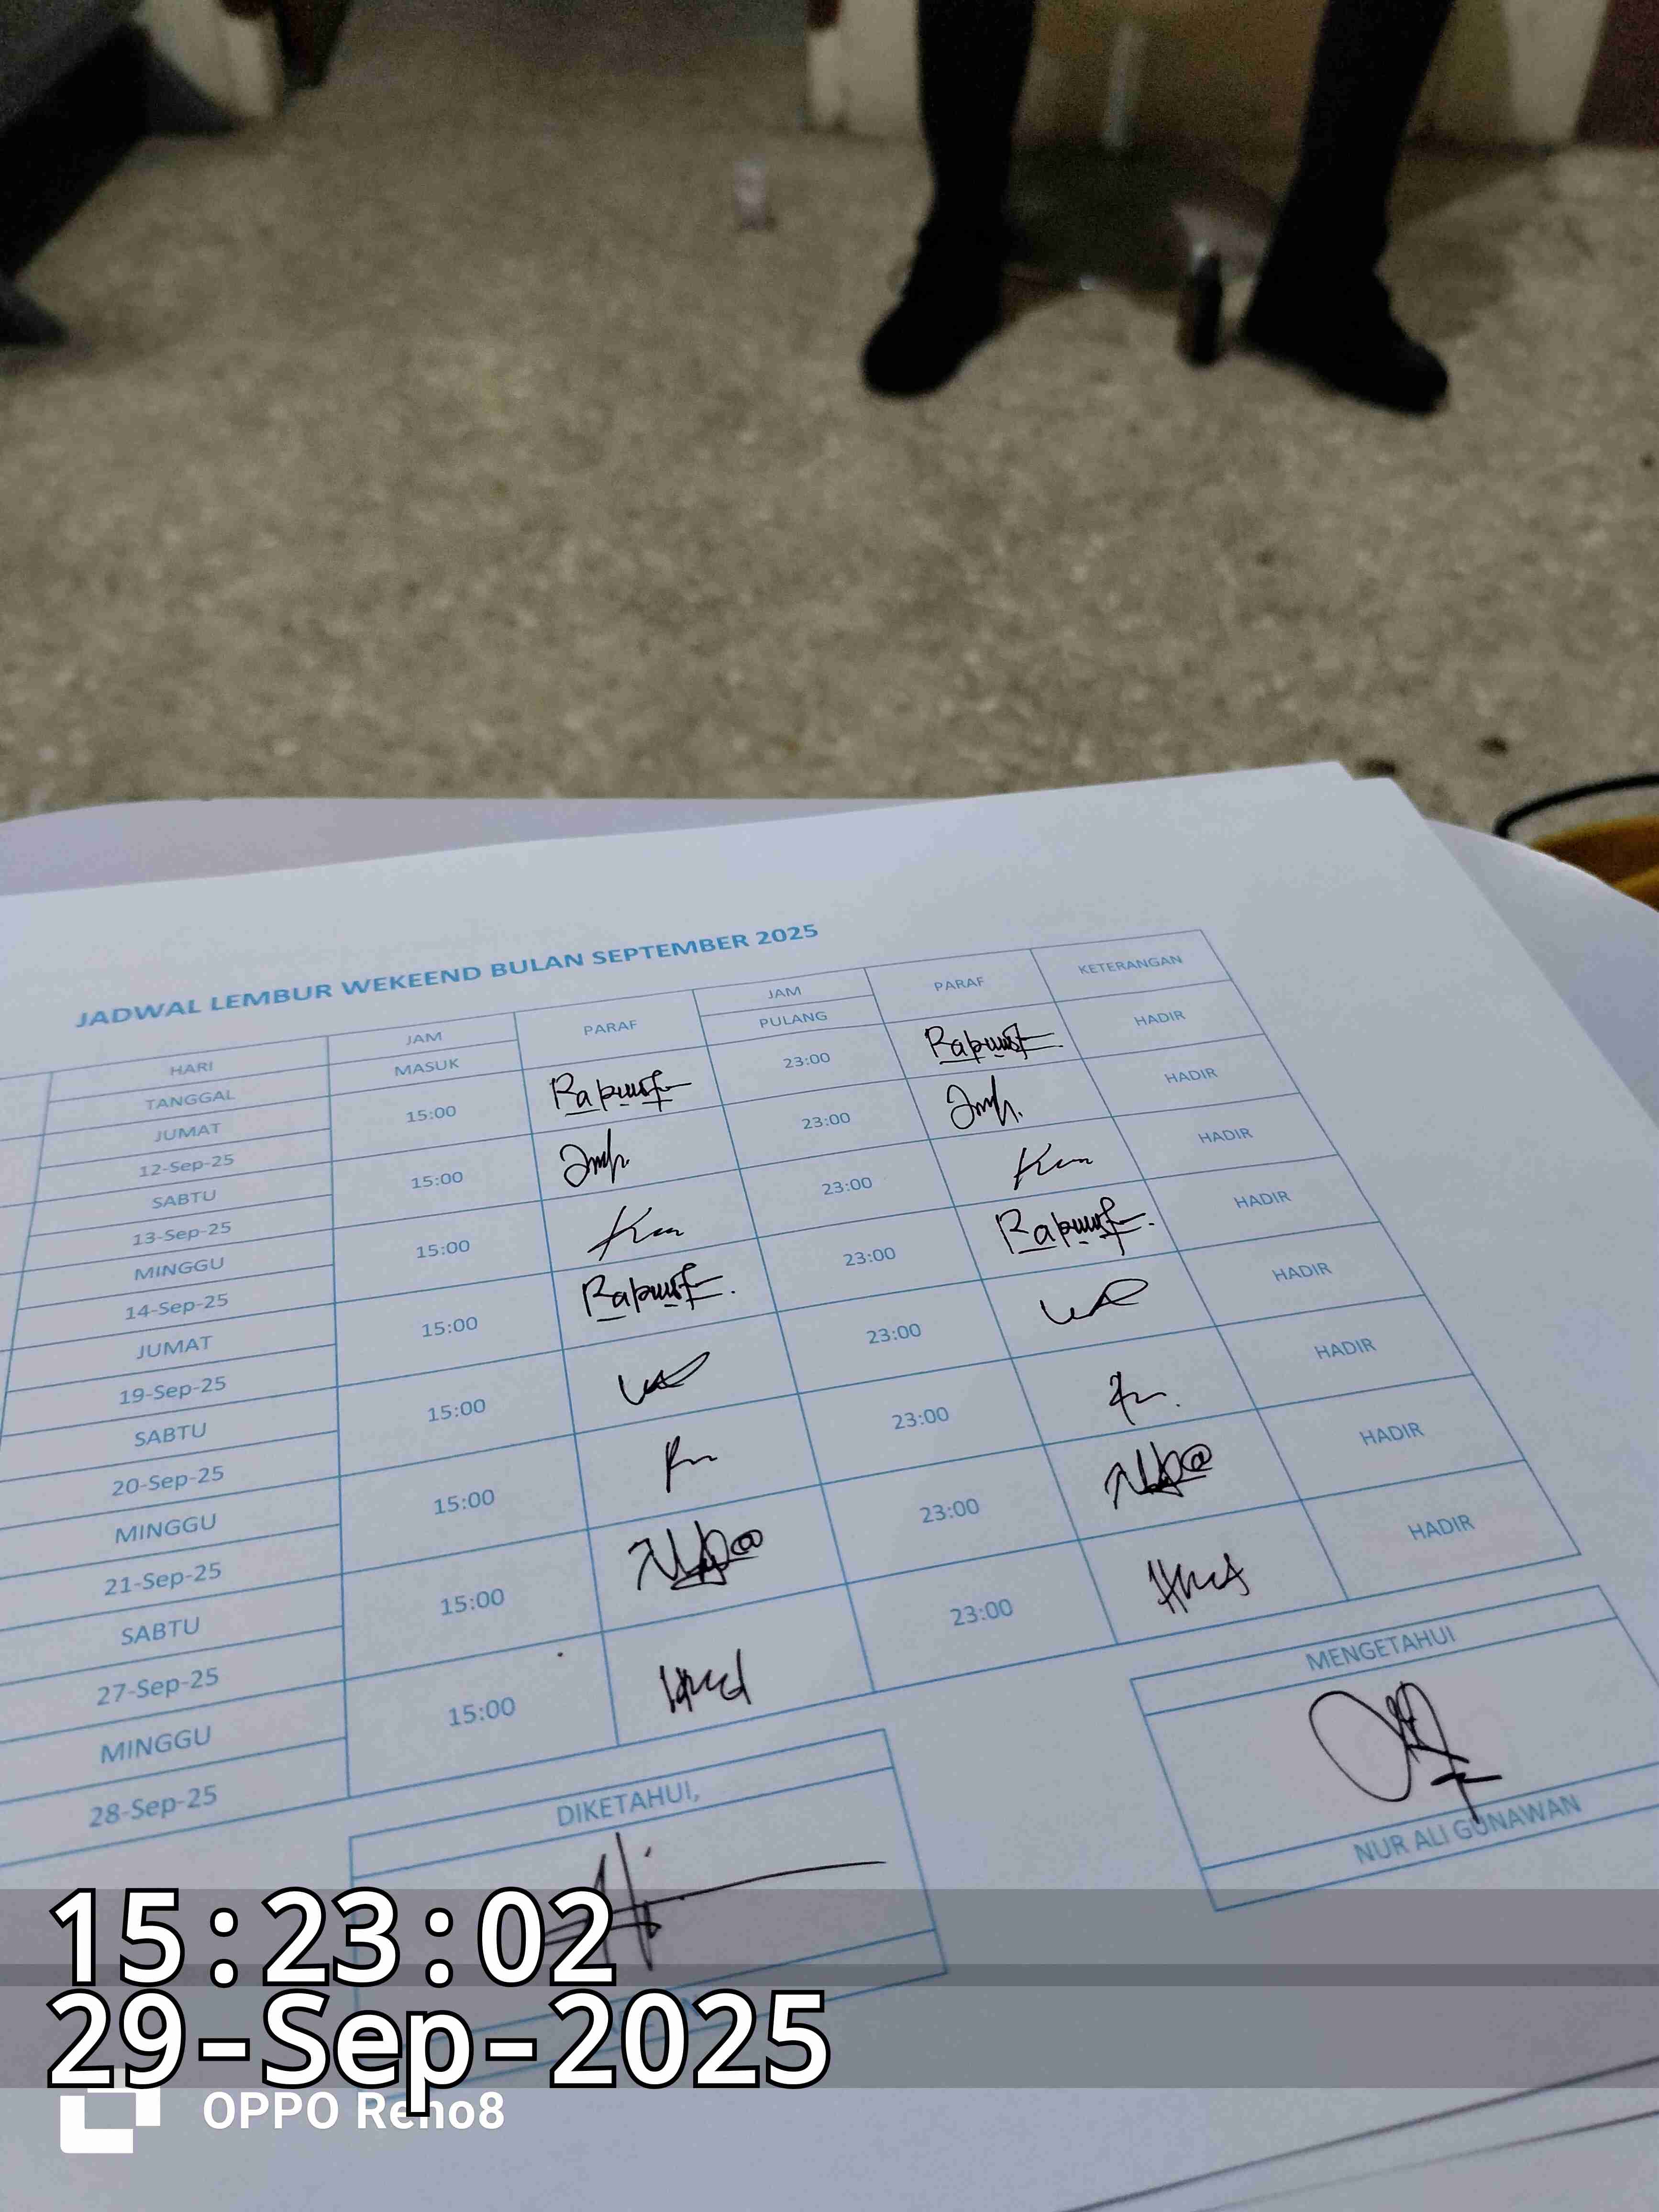 JADWAL LEMBUR WEKEEND BULAN SEPTEMBER 2025
HARI TANGGAL JAM MASUK PARAF JAM PULANG PARAF KETERANGAN
JUMAT 12-Sep-25 15:00 23:00 HADIR
SABTU 13-Sep-25 15:00 23:00 HADIR
MINGGU 14-Sep-25 15:00 23:00 HADIR
JUMAT 19-Sep-25 15:00 23:00 HADIR
SABTU 20-Sep-25 15:00 23:00 HADIR
MINGGU 21-Sep-25 15:00 23:00 HADIR
SABTU 27-Sep-25 15:00 23:00 HADIR
MINGGU 28-Sep-25 15:00 23:00 HADIR
DIKETAHUI,
MENGETAHUI
NUR ALI GUNAWAN
15:23:02
29-Sep-2025
OPPO Reno8